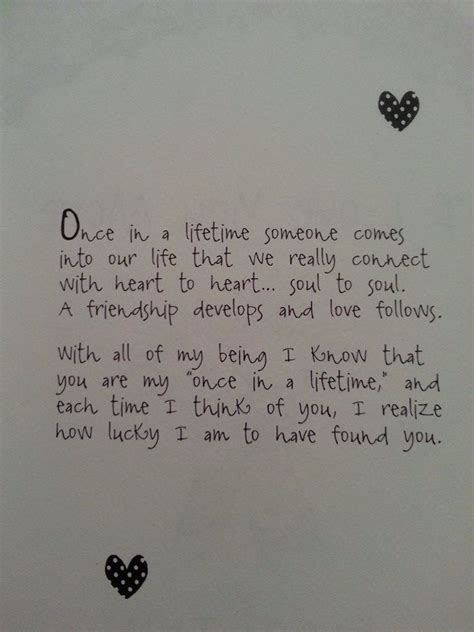 Once in a lifetime someone comes
into our life that we really connect
with heart to heart... soul to soul.
A friendship develops and love follows.
With all of my being I know that
you are my "once in a lifetime," and
each time I think of you, I realize
how lucky I am to have found you.